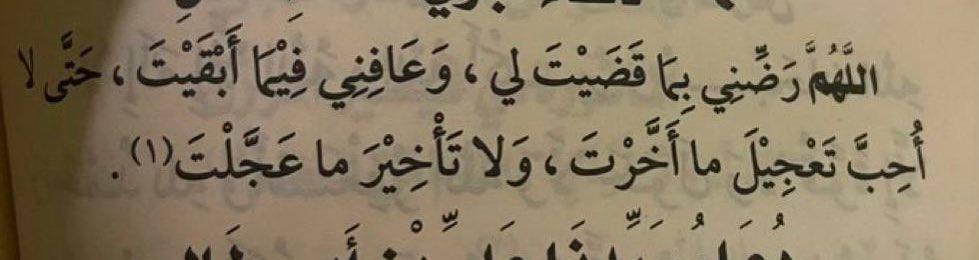 اللَّهُمَّ رَضِّنِي بِمَا قَضَيْتَ لي ، وَعَافِنِي فِيْمَا أَبْقَيْتَ ، حَتَّى لا
أُحِبَّ تَعْجِيْلَ ما أَخَّرْتَ ، وَلا تَأْخِيْرَ ما عَجَّلْتَ(١) .